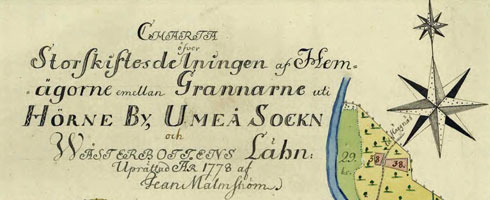 CHARTA
öfver
Storskiftesdelningen af Hem-
ägorne emellan Grannarne uti
HÖRNE BY, UMEÅ SOCKN
och
WÄSTERBOTTENS Låhn:
Uprättad ÅR 1778 af
Jean Malmström
29.
38.